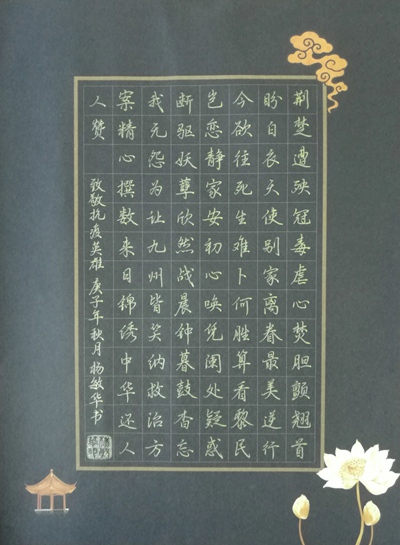 荆楚遭殃冠毒虐心焚胆颤翘首
盼白衣天使别家离眷最美逆行
今欲往死生难卜何胜算看黎民
岂恋静家安初心唤凭阑处疑惑
断驱妖孽欣然战晨钟暮鼓杳忘
我无怨为让九州皆笑纳救治方
案精心撰数来日锦绣中华还人
人赞 致敬抗疫英雄 庚子年秋月杨敏华书